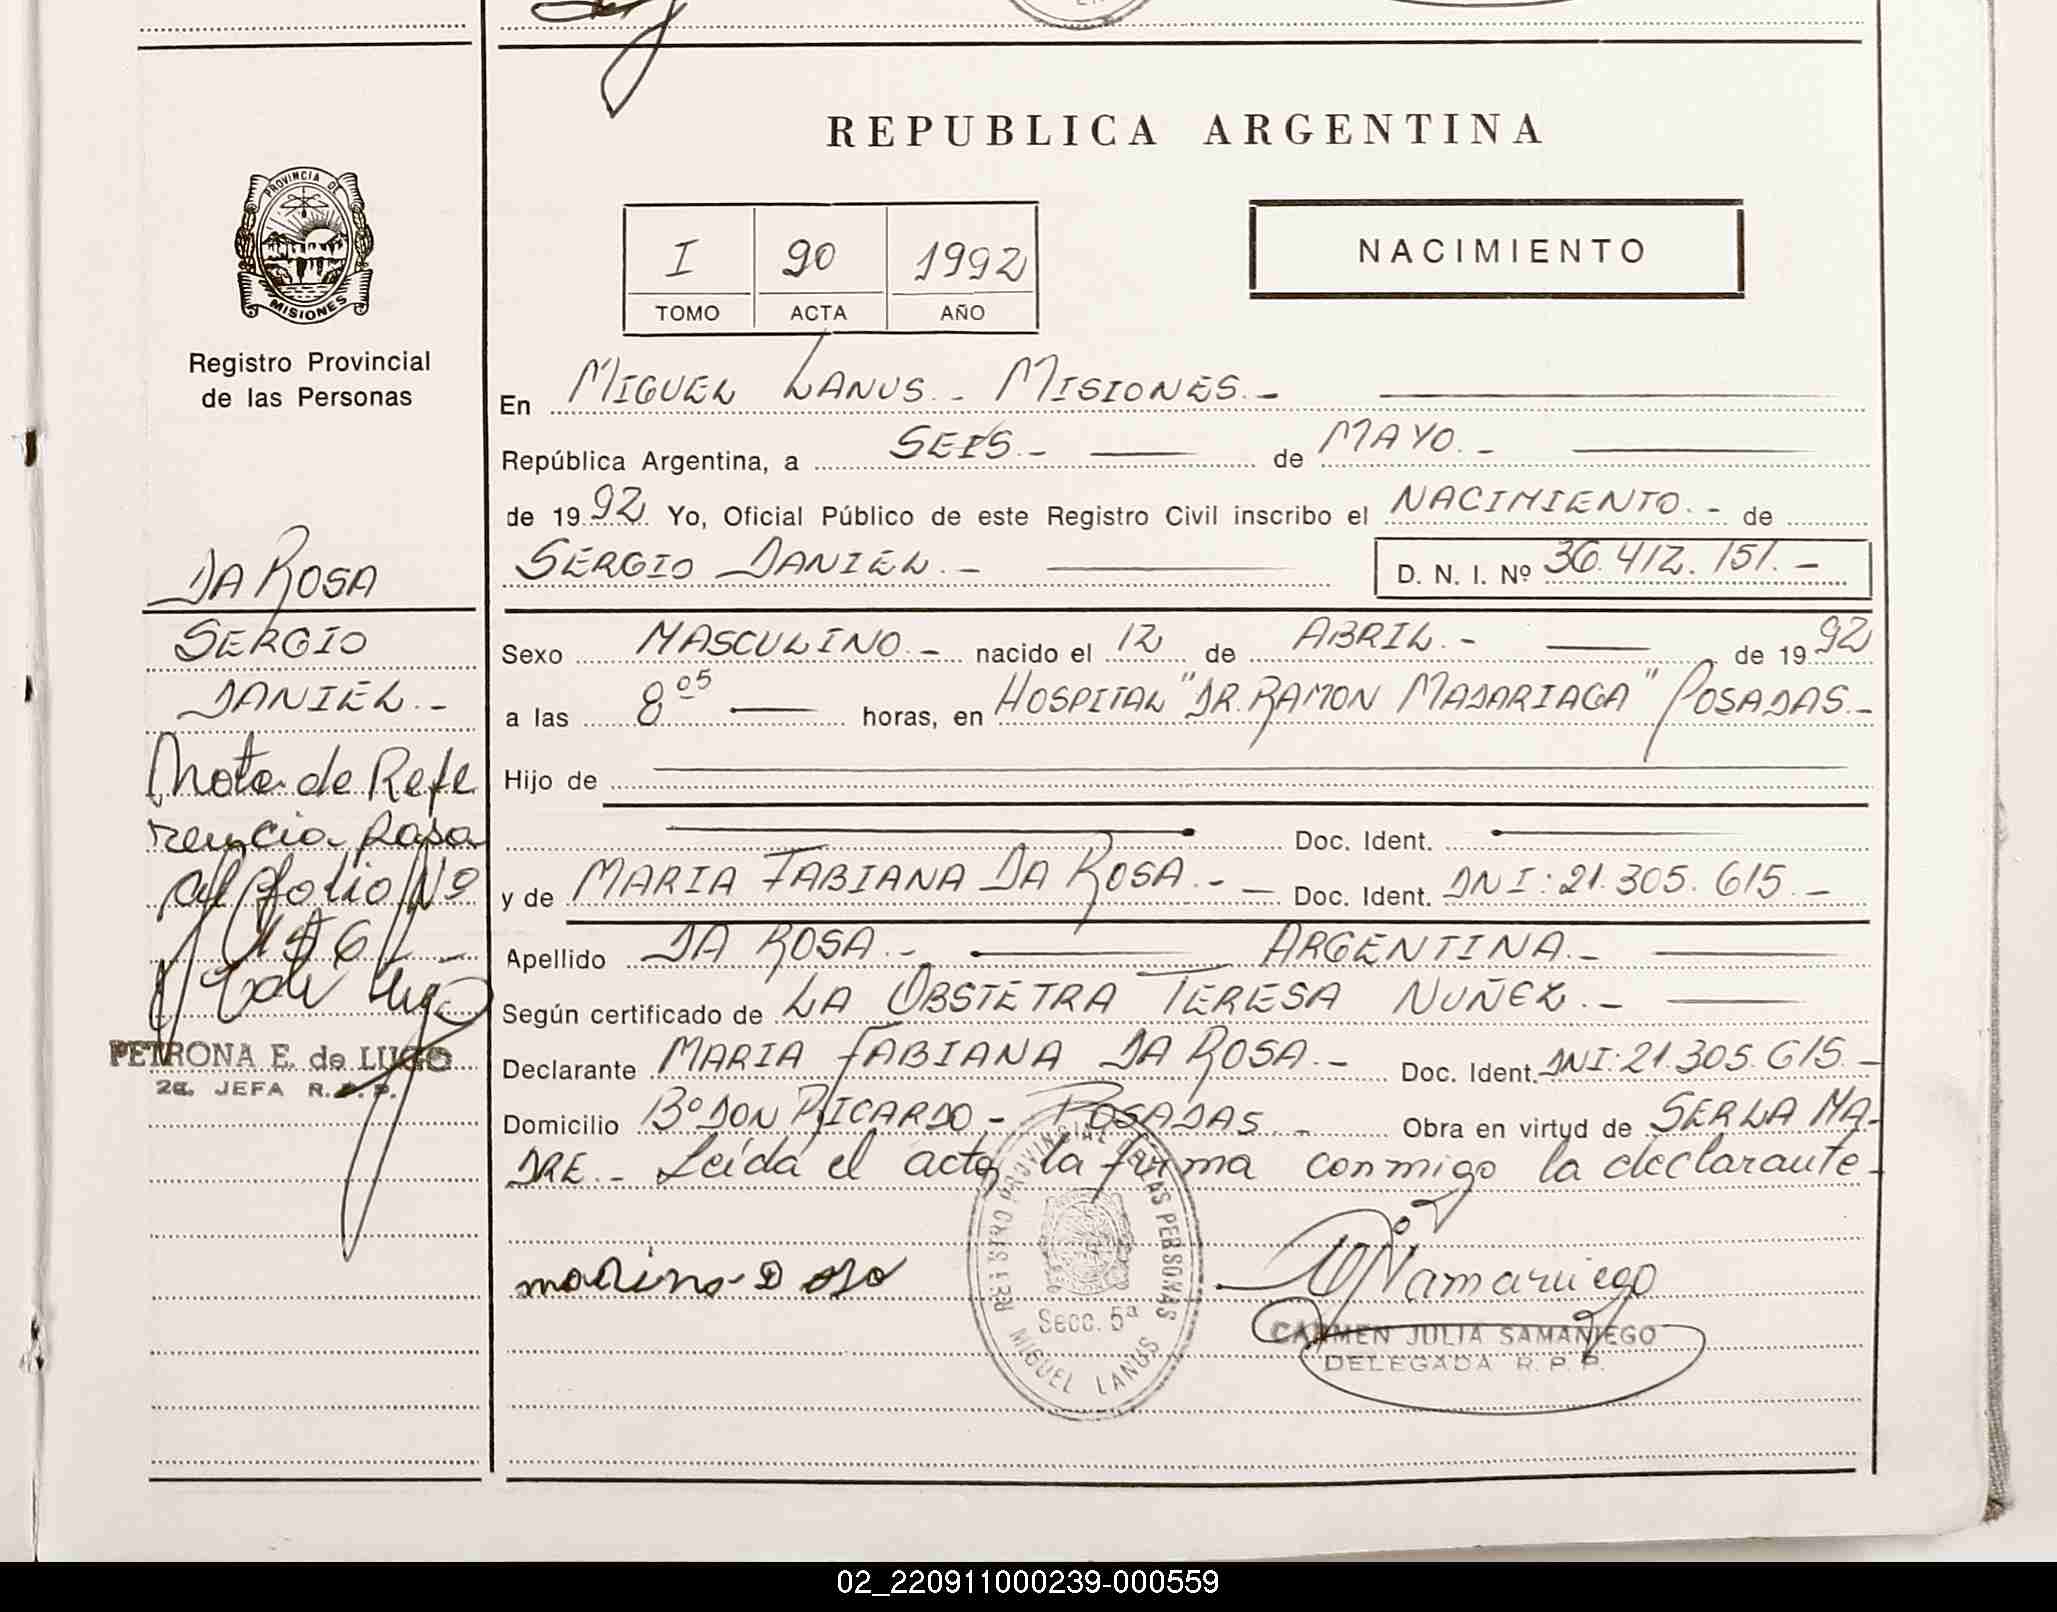 REPUBLICA ARGENTINA
PROVINCIA DE
MISIONES
Registro Provincial
de las Personas
I 90 1992
TOMO ACTA AÑO
NACIMIENTO
En MIGUEL LANUS.- MISIONES.-
República Argentina, a SEIS.- de MAYO.-
de 1992 Yo, Oficial Público de este Registro Civil inscribo el NACIMIENTO.- de
SERGIO DANIEL.- D. N. I. Nº 36.412.151.-
Sexo MASCULINO.- nacido el 12 de ABRIL.- de 1992
a las 8 05 horas, en HOSPITAL "DR. RAMON MADARIAGA" POSADAS.-
Hijo de
Doc. Ident.
y de MARIA FABIANA DA ROSA.- Doc. Ident. DNI: 21.305.615.-
Apellido DA ROSA.- ARGENTINA.-
Según certificado de LA OBSTETRA TERESA NUÑEZ.-
Declarante MARIA FABIANA DA ROSA.- Doc. Ident. DNI: 21.305.615.-
Domicilio Bº DON RICARDO - POSADAS.- Obra en virtud de SER LA MA-
DRE.- Leída el acta, la firma conmigo la declarante-
REGISTRO PROVINCIAL DE LAS PERSONAS
Secc. 5ª
MIGUEL LANUS
CARMEN JULIA SAMANIEGO
DELEGADA R. P. P.
DA ROSA
SERGIO
DANIEL.-
Nota de Refe
rencia pasa
al folio Nº
PETRONA E. de LUGO
2a. JEFA R. P. P.
02_220911000239-000559